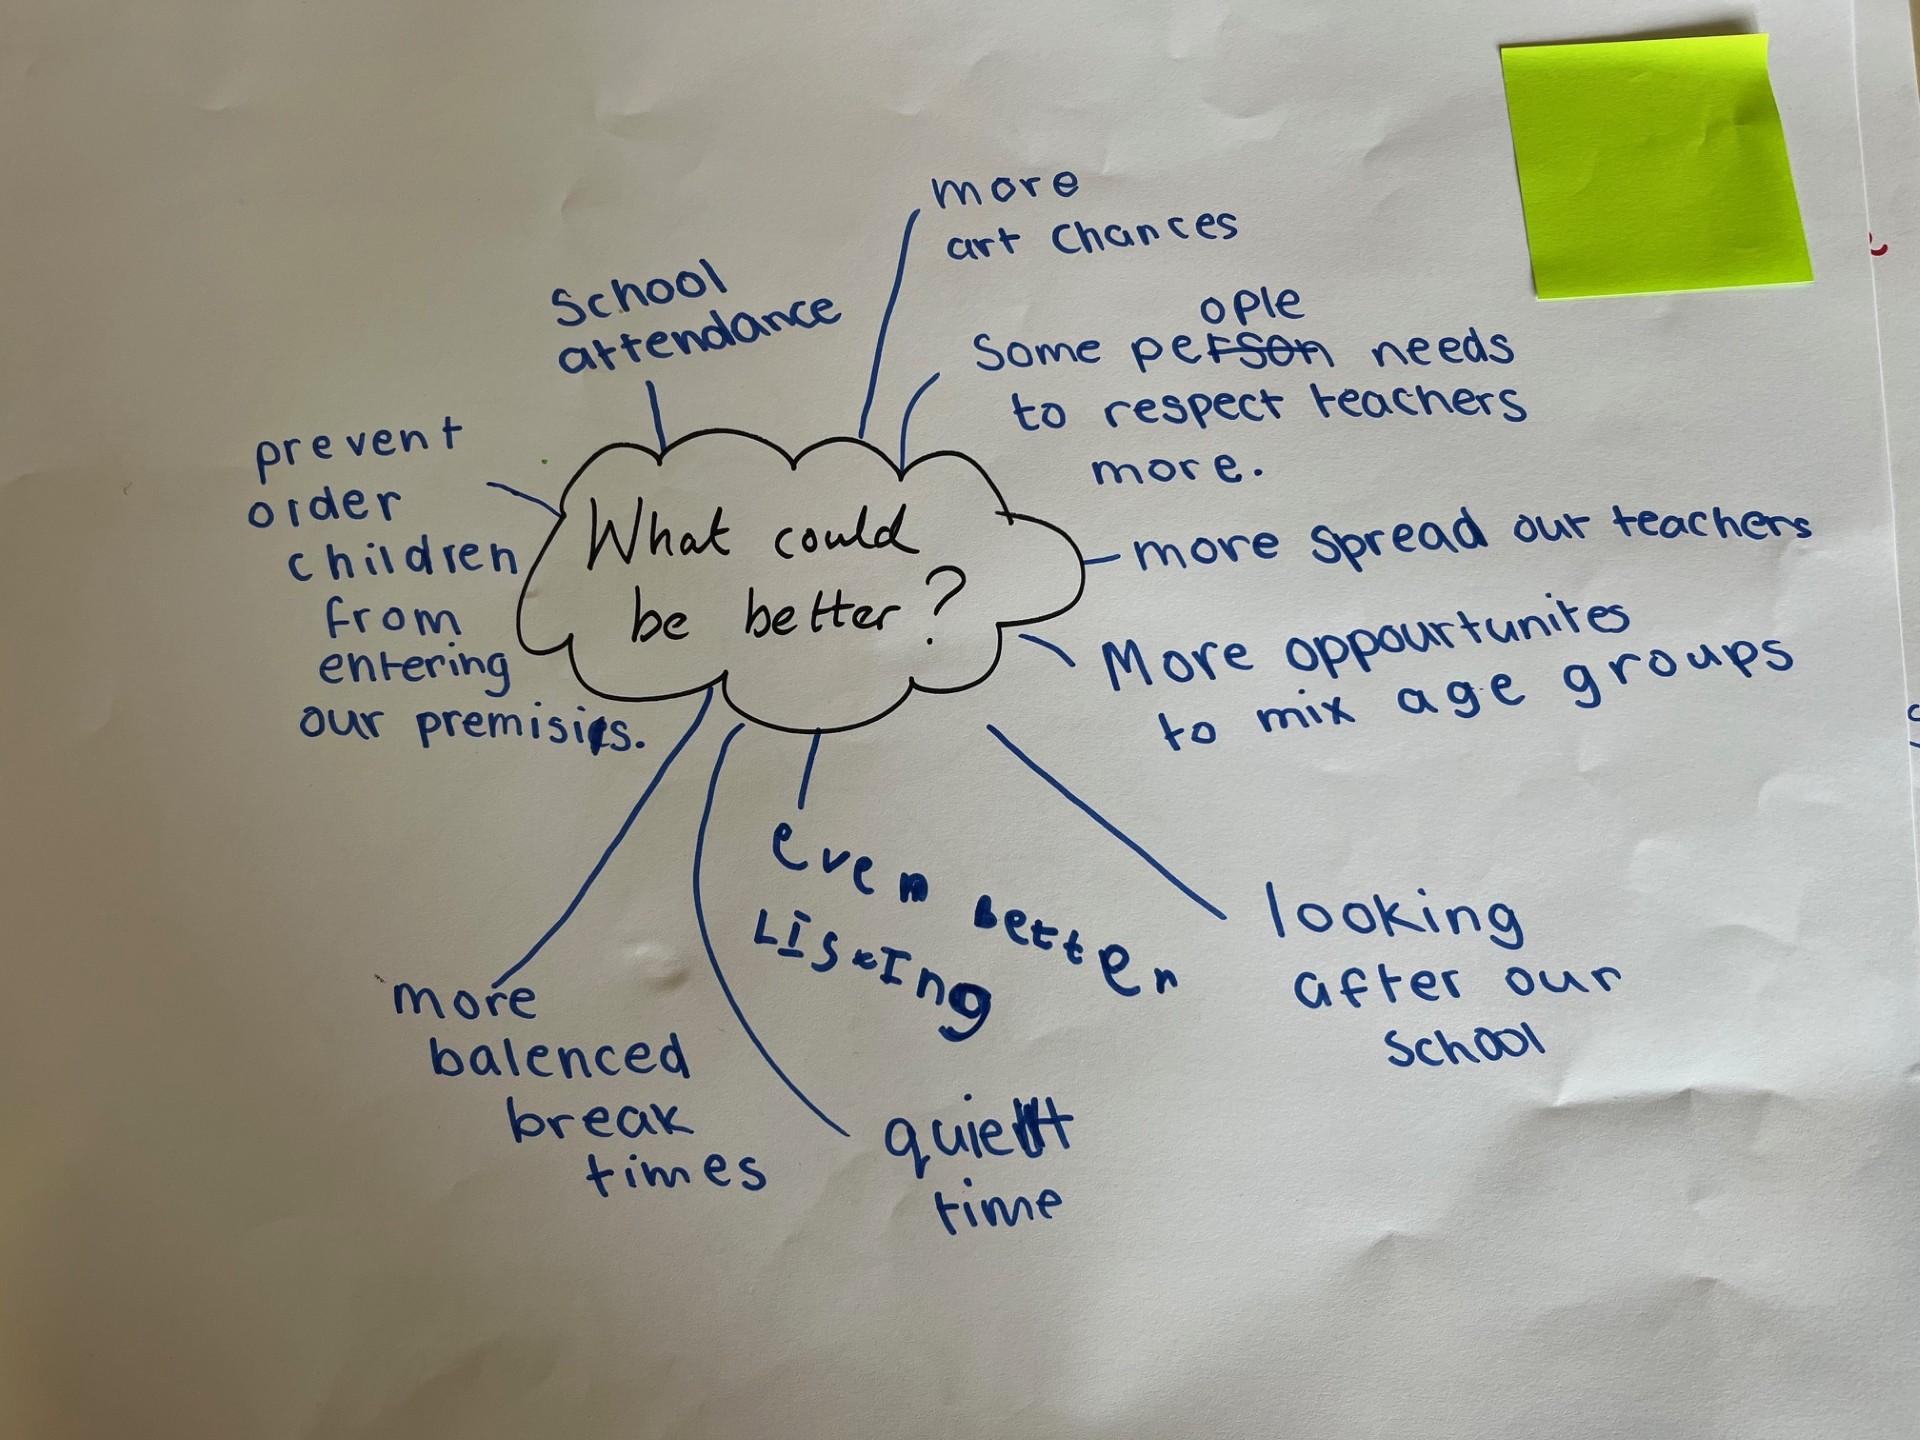 more
art chances
School
attendance
ople
Some person needs
to respect teachers
more.
prevent
older
children
from
entering
our premisis.
What could
be better?
more spread our teachers
More oppourtunites
to mix age groups
even better
Listing
looking
after our
school
more
balenced
break
times
quiet
time